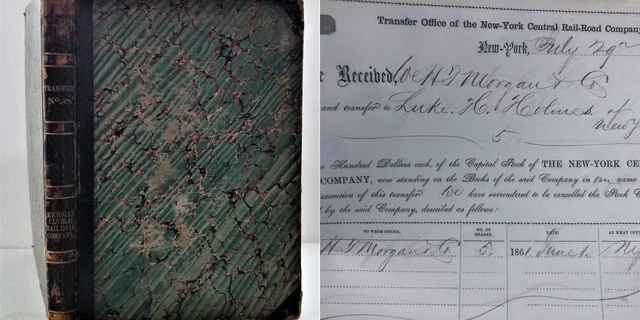 TRANSFER
No.
MICHIGAN
CENTRAL
RAIL ROAD
COMPANY
Transfer Office of the New-York Central Rail-Road Company
New-York, July 29
Received, We H T Morgan & Co
and transfer to Luke. H. Holmes of
New Y
5
Hundred Dollars each, of the Capital Stock of THE NEW-YORK CE
COMPANY, now standing on the Books of the said Company in our name
execution of this transfer We have surrendered to be cancelled the Stock
by the said Company, described as follows:
TO WHOM ISSUED. NO. OF SHARES. DATE. AT WHAT OFF
H T Morgan & Co 5. 1861 June NY